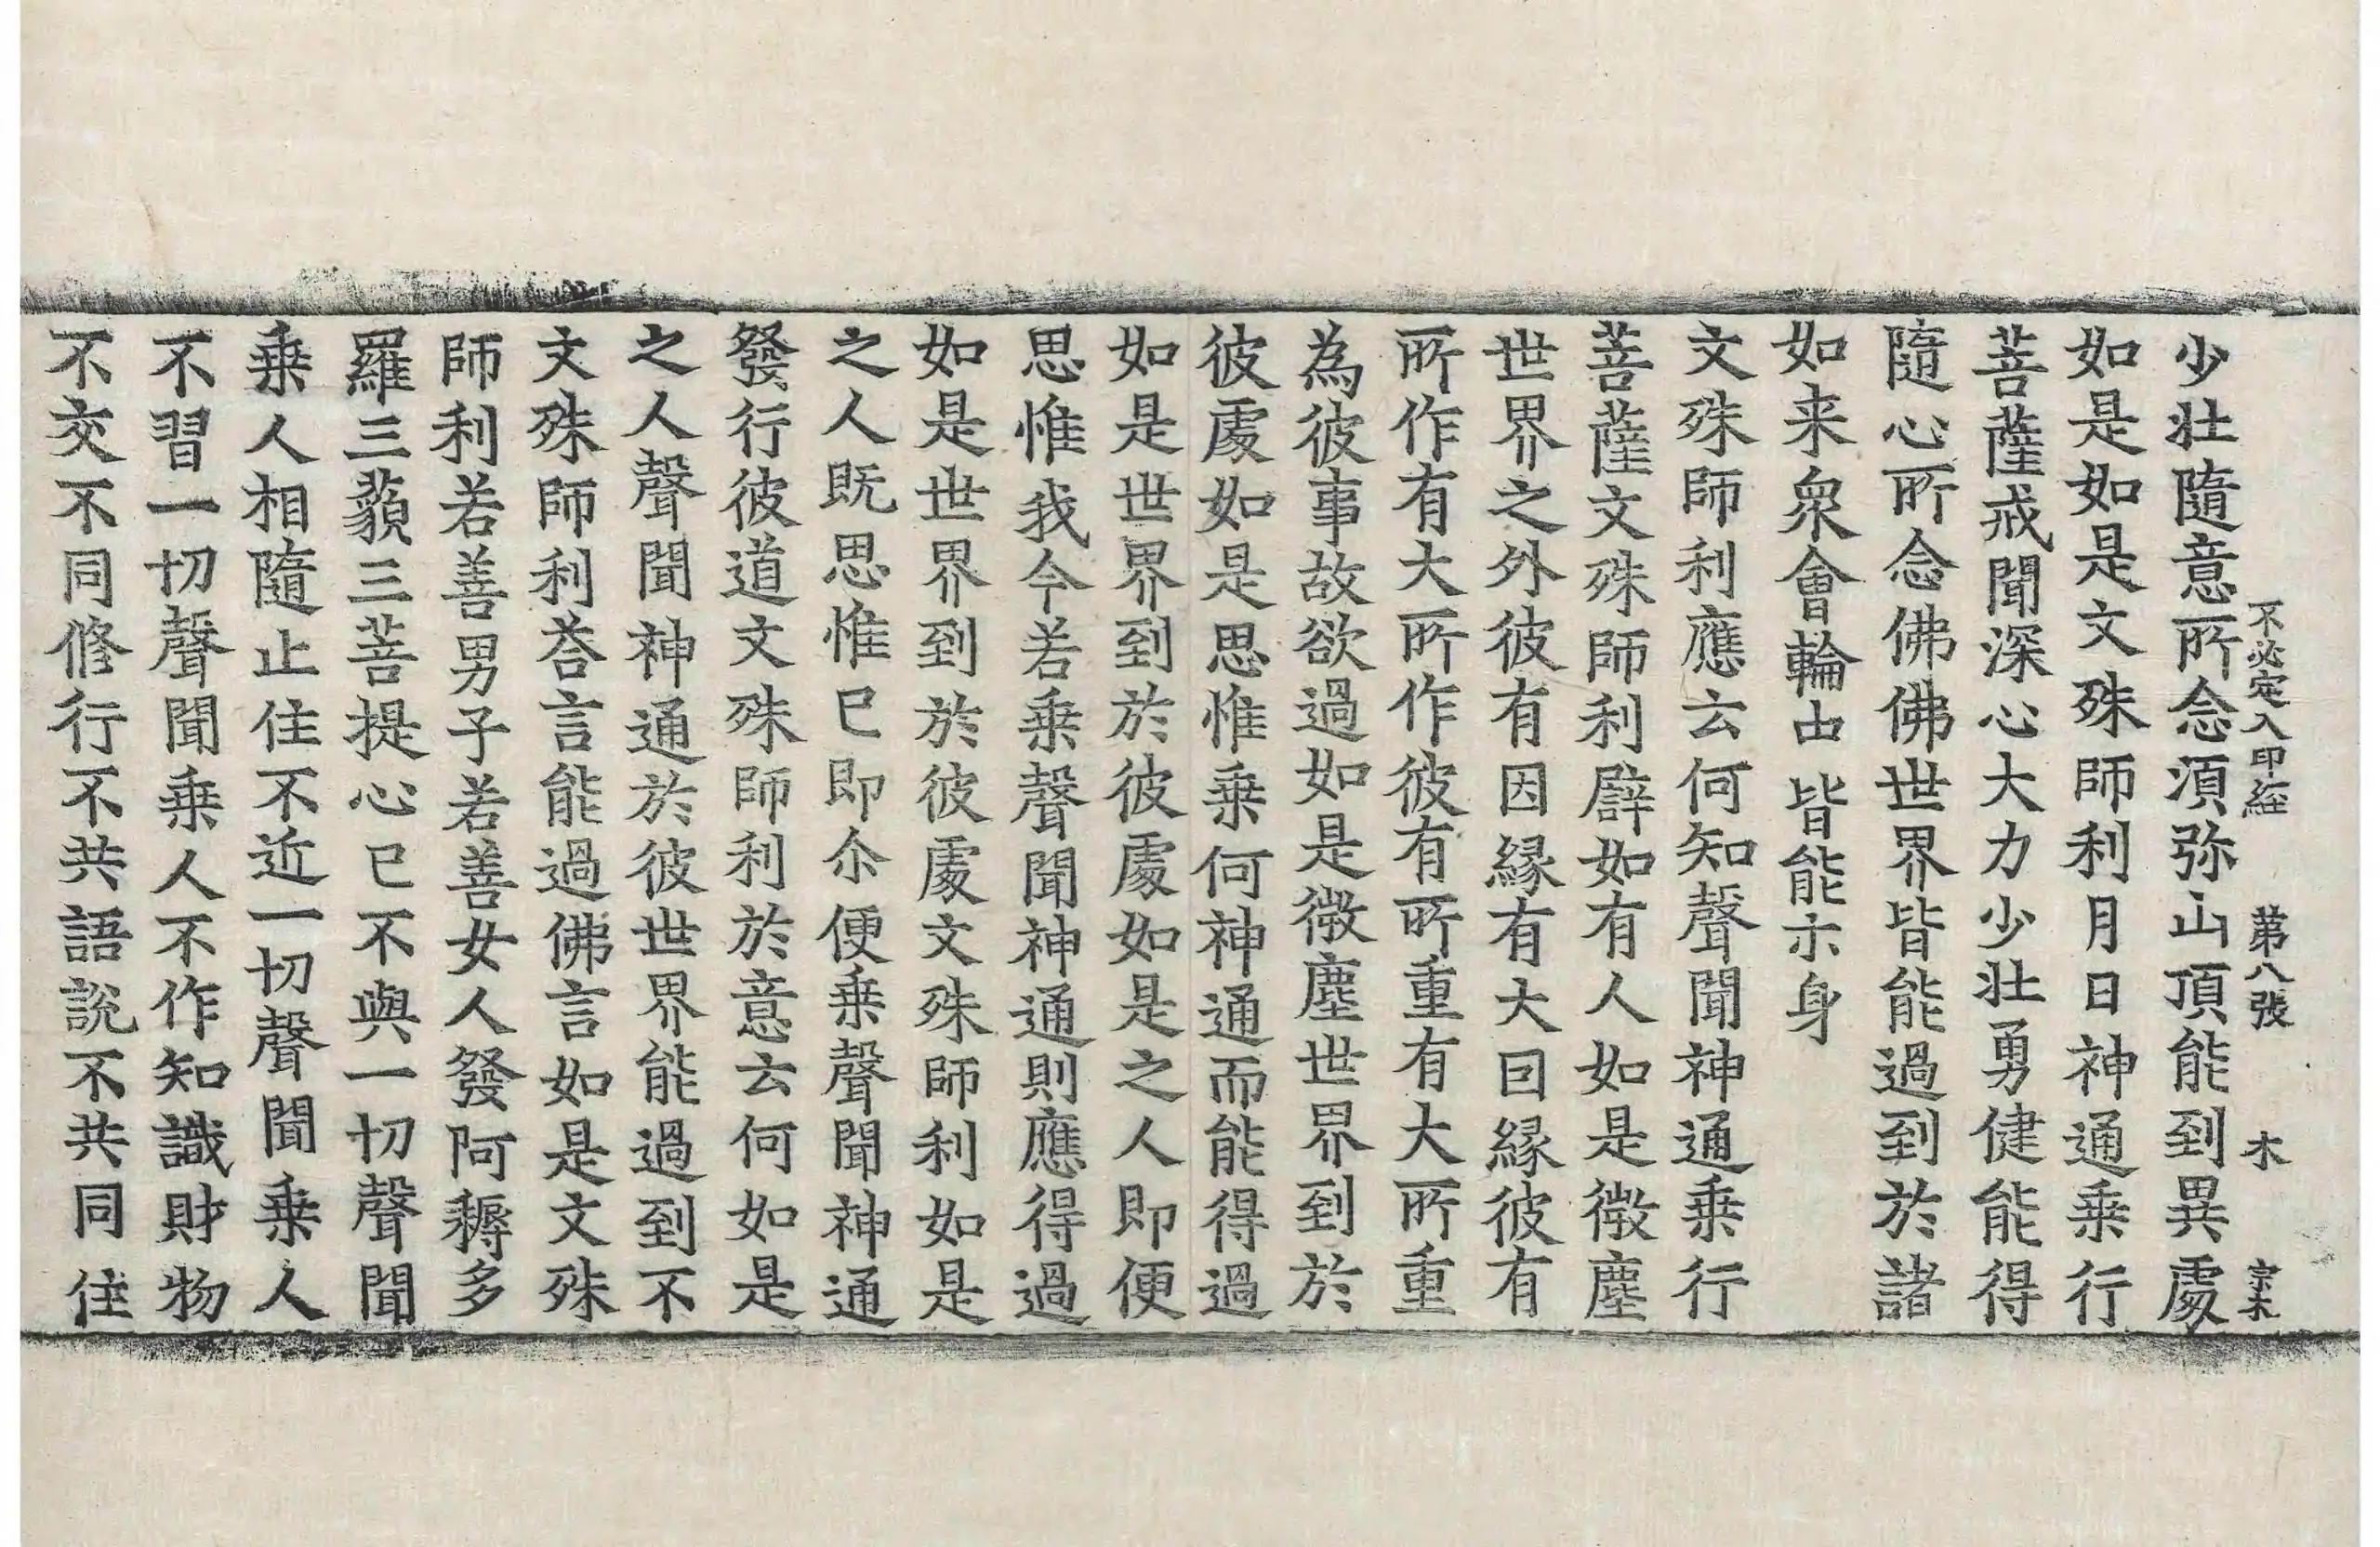 不必定入印経 第八張 木 宗木
少壮隨意所念湏弥山頂能到異處
如是如是文殊師利月日神通乗行
菩薩戒聞深心大力少壮勇健能得
隨心所念佛佛世界皆能過到於諸
如来衆會輪由皆能示身
文殊師利應云何知聲聞神通乗行
菩薩文殊師利譬如有人如是微塵
世界之外彼有因縁有大因縁彼有
所作有大所作彼有所重有大所重
為彼事故欲過如是微塵世界到於
彼處如是思惟乗何神通而能得過
如是世界到於彼處如是之人即便
思惟我今若乗聲聞神通則應得過
如是世界到於彼處文殊師利如是
之人既思惟已即尒便乗聲聞神通
發行彼道文殊師利於意云何如是
之人聲聞神通於彼世界能過到不
文殊師利荅言能過佛言如是文殊
師利若善男子若善女人發阿耨多
羅三藐三菩提心已不與一切聲聞
乗人相隨止住不近一切聲聞乗人
不習一切聲聞乗人不作知識財物
不交不同修行不共語說不共同住